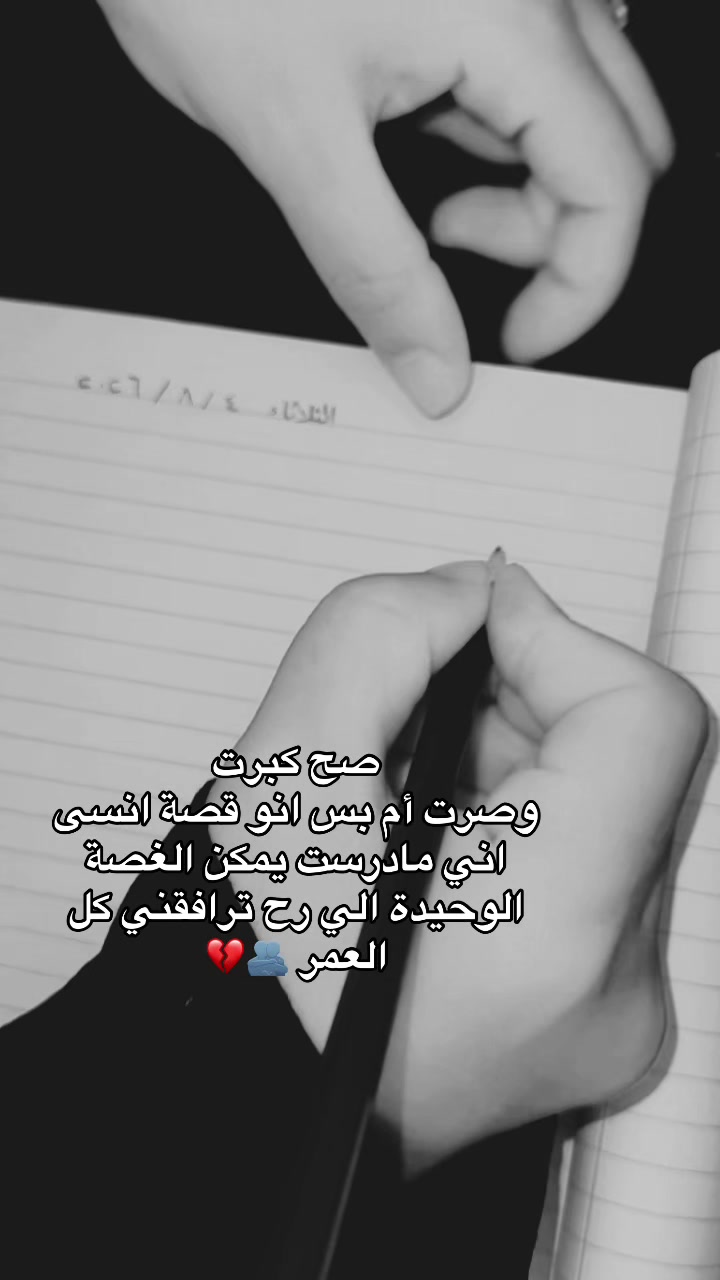 الثلاثاء ٤ / ٨ / ٢٠٢٦
صح كبرت
وصرت أم بس انو قصة انسى
اني مادرست يمكن الغصة
الوحيدة الي رح ترافقني كل
العمر 🫂💔